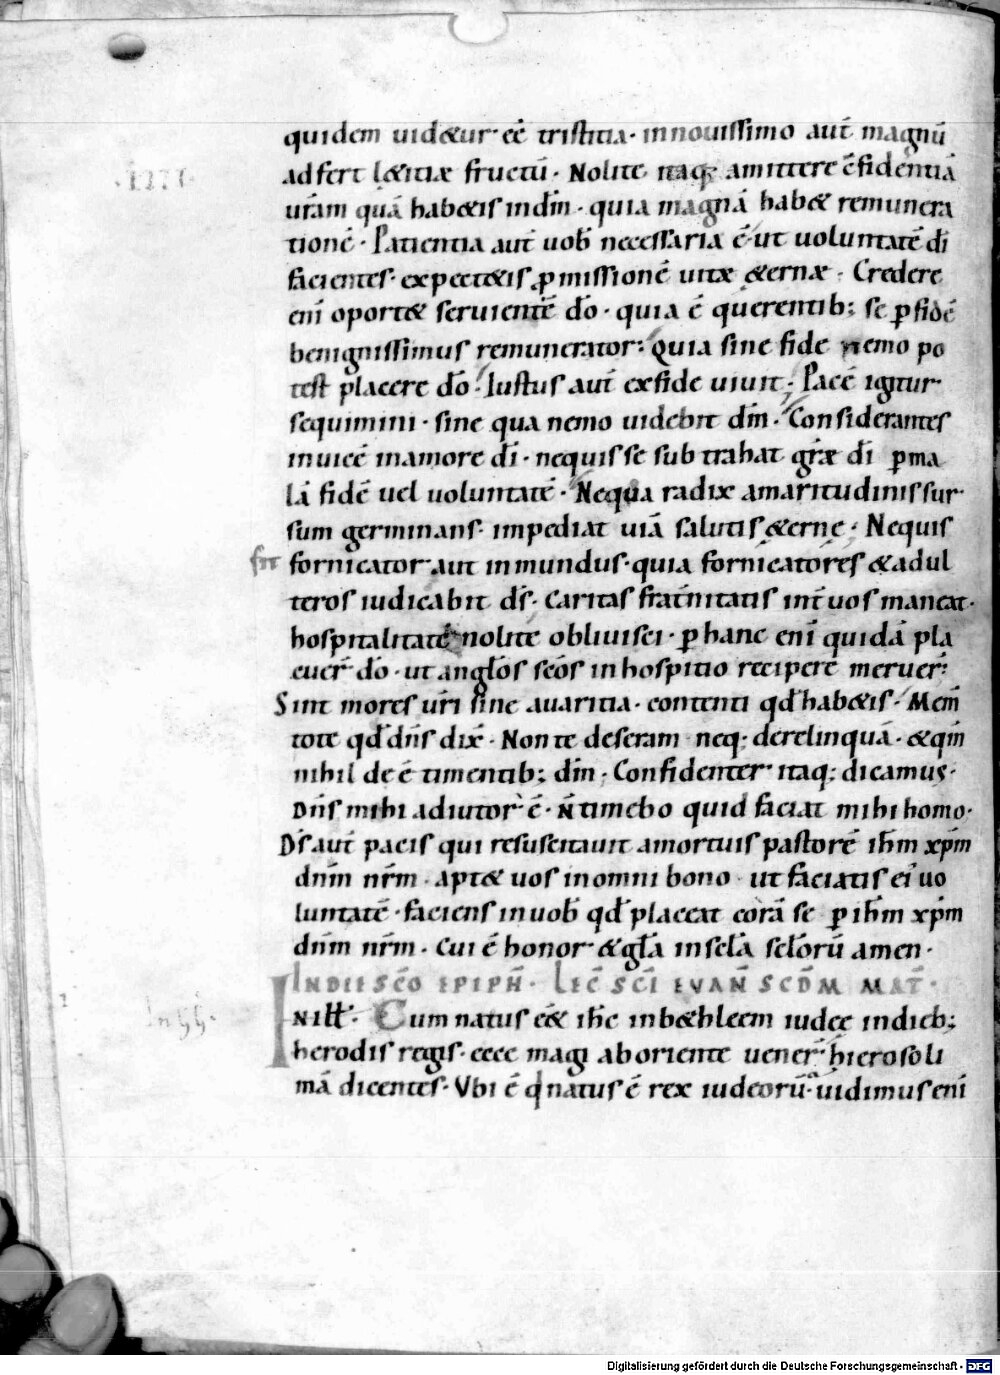 quidem uid&ur· eē tristitia· innouissimo aut̄ magnū
adfert l&itiæ fructū· Nolite itaq; amittere c̄fidentiā
ur̄am quā hab&is indn̄m· quia magnā hab& remunera
tionē· Patientia aut̄ uob̄ necessaria ē· ut uoluntatē dī
facientes· expect&is ꝓmissionē uitæ &ernæ· Credere
enī oport& seruientē dō· quia ē querentib; se ꝑ fidē
benignissimus remunerator: Quia sine fide nemo po
test placere dō· Iustus aut̄ exfide uiuit· Pacē igitur
sequimini· sine qua nemo uidebit dn̄m· Considerantes
inuicē inamore dī· nequis se subtrahat gr̄æ dī ꝑ ma
lā fidē uel uoluntatē· Nequa radix amaritudinis sur
sum germinans· impediat uiā salutis &erne· Nequis
fit
fornicator aut inmundus· quia fornicatores & adul
teros iudicabit ds̄· Caritas frat̄nitatis int̄ uos maneat·
hospitalitatē nolite obliuisci· ꝑ hanc enī quidā pla
cuer̄ dō· ut angl̄os sc̄os inhospitio recipere meruer̄:
Sint mores ur̄i sine auaritia· contenti qd̄ hab&is· Mem̄
tote qd̄ dn̄s dix̄· Non te deseram neq; derelinquā· &qm̄
nihil de ē timentib; dn̄m· Confidenter itaq; dicamus·
Dn̄s mihi adiutor ē· n̄ timebo quid faciat mihi homo·
Ds̄ aut̄ pacis qui resuscitauit amortuis pastorē ih̄m xp̄m
dn̄m nr̄m· apt& uos inomni bono· ut faciatis eī uo
luntatē· faciens inuob̄ qd̄ placeat corā se ꝑ ih̄m xp̄m
dn̄m nr̄m· Cui ē honor & gl̄a insc̄la sc̄lorū amen·
IN DIE SC̄O EPIPH̄· LEC̄ SC̄I EVAN̄ SCD̄M MAT̄·
IN ILL̄· Cum natus e&̄ ih̄c inb&hleem iudee indieb;
herodis regis· ecce magi aboriente uener̄ hierosoli
mā dicentes· Vbi ē q natus ē rex iudeorū· uidimus enī
Digitalisierung gefördert durch die Deutsche Forschungsgemeinschaft - DFG